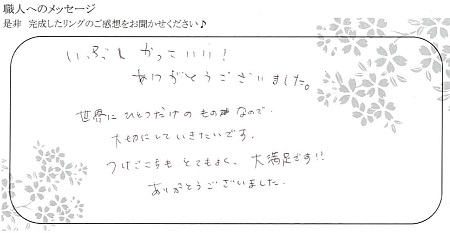 職人へのメッセージ
是非 完成したリングのご感想をお聞かせください♪
いぶしかっこいい！
ありがとうございました。
世界にひとつだけのものなので、
大切にしていきたいです。
つけごこちもとてもよく、大満足です!!
ありがとうございました。